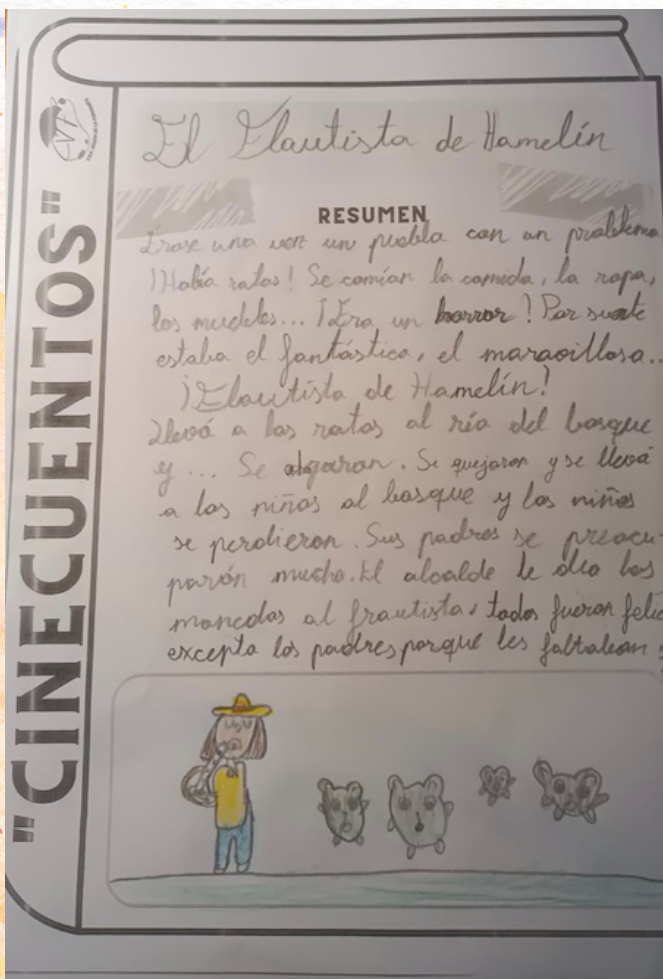 "CINECUENTOS"
El Flautista de Hamelín
RESUMEN
Érase una vez un puebla con un problema
¡Había ratas! Se comían la comida, la ropa,
los muebles... ¡Era un horror! Por suerte
estaba el fantástico, el maravilloso..
¡Flautista de Hamelín!
Llevó a las ratas al río del bosque
y ... Se algaron. Se quejaron y se llevó
a los niños al bosque y los niños
se perdieron. Sus padres se preocu-
parón mucho. El alcalde le dio las
monedas al frautista, todos fueron felic
excepto los padres porque les faltaban